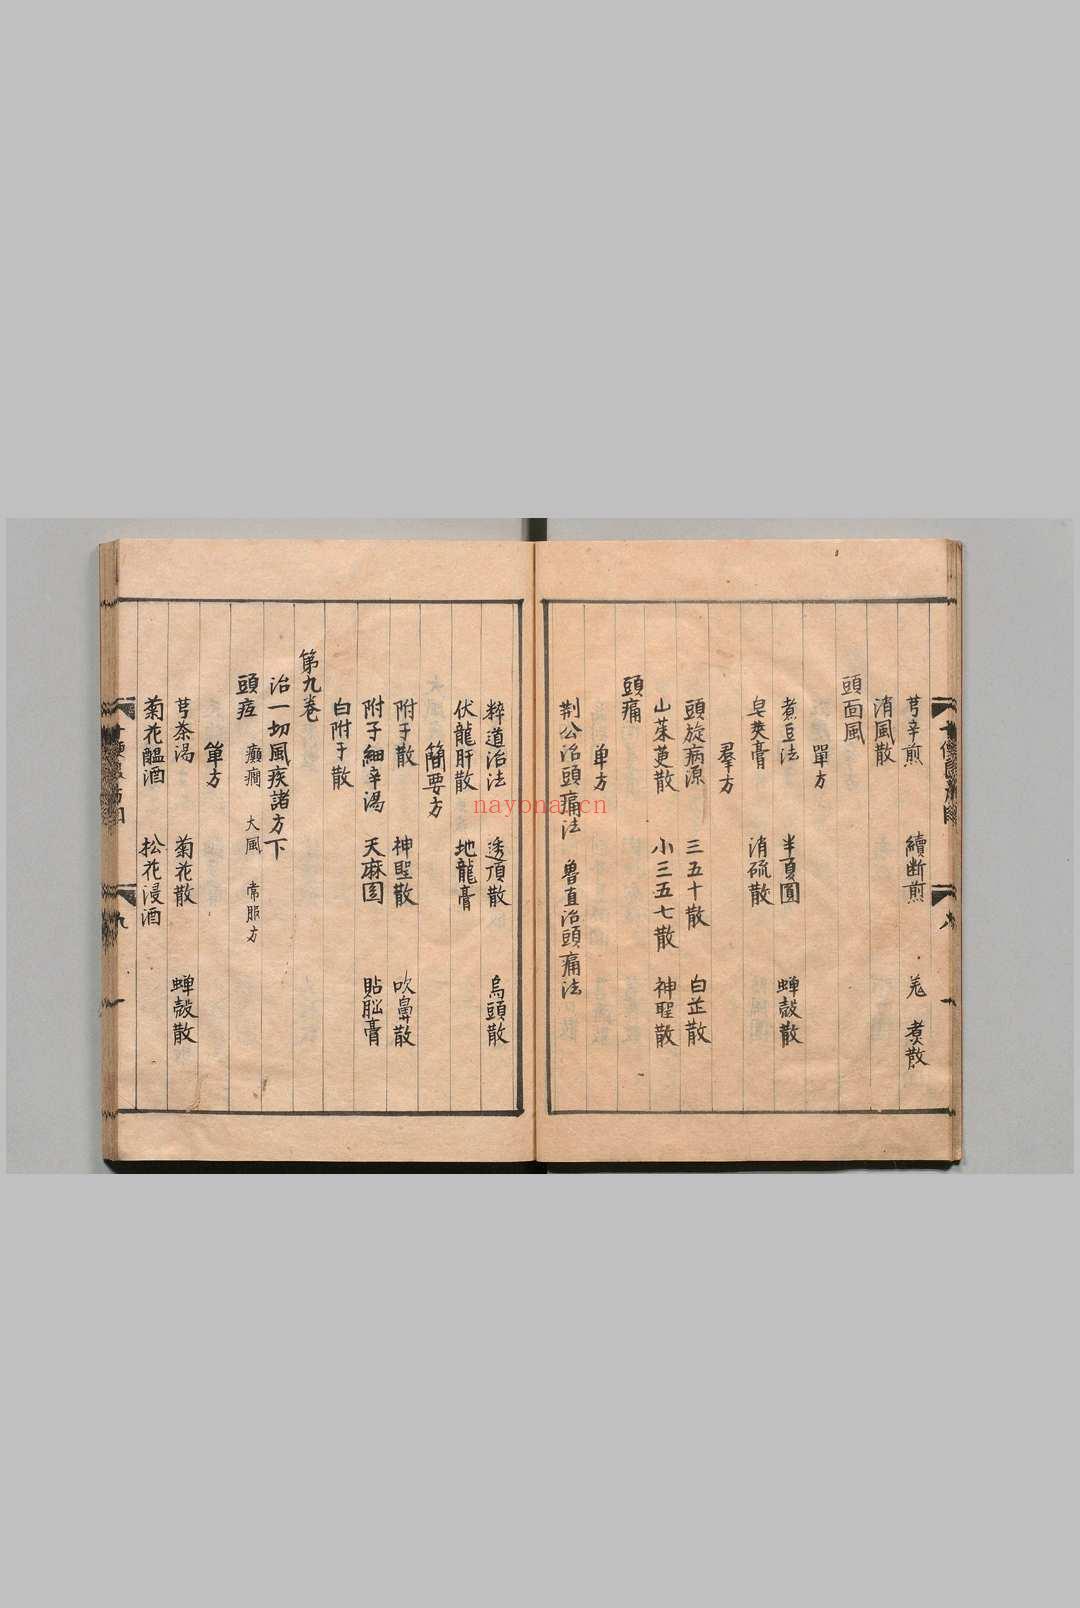 芎辛煎 續断煎 羗煮散
消風散
頭面風
單方
煮豆法 半夏圓 蟬殼散
皂莢膏 消硫散
羣方
頭旋病源 三五十散 白芷散
山茱萸散 小三五七散 神聖散
頭痛
单方
荆公治頭痛法 魯直治頭痛法
粹道治法 透頂散 烏頭散
伏龍肝散 地龍膏
簡要方
附子散 神聖散 吹鼻散
附子細辛湯 天麻圎 貼𦛨膏
白附子散
第九卷
治一切風疾諸方下
頭痘 癲癇 大風 常服方
单方
芎茶湯 菊花散 蟬殼散
菊花醖酒 松花浸酒
九
nayona.cn